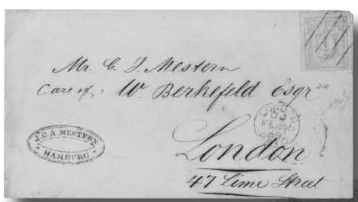 Mr. C. J. Mestern
Care of, W. Berkefeld Esqr
London
47 Lime Street
J.C.A. MESTERN
HAMBURG